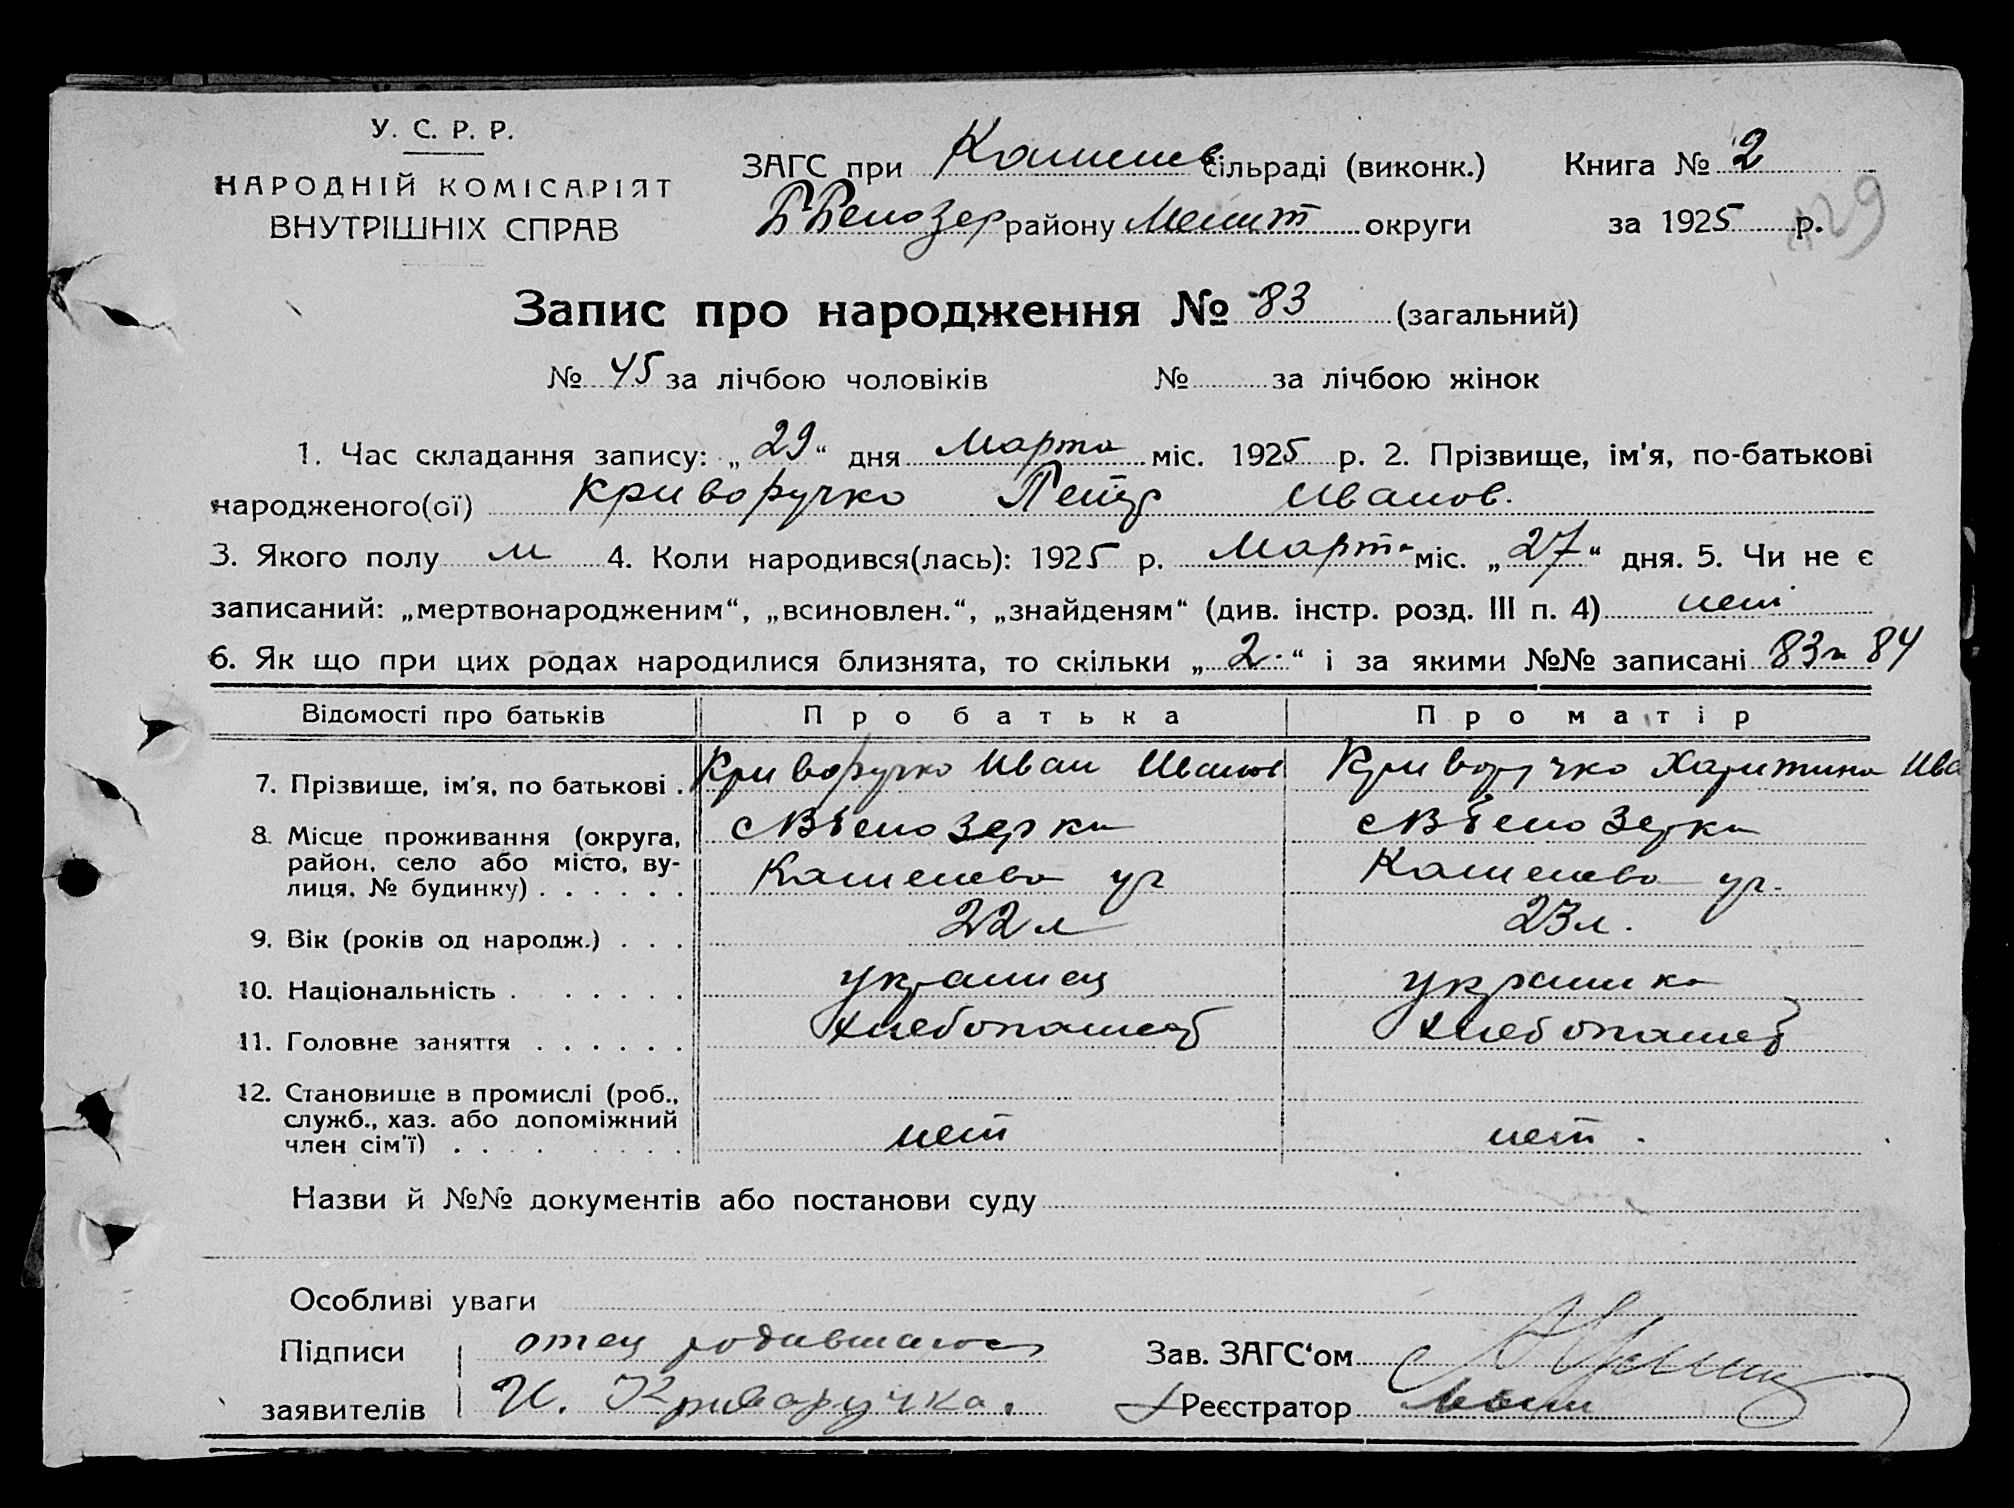 У. С. Р. Р.
НАРОДНІЙ КОМІСАРІЯТ
ВНУТРІШНІХ СПРАВ
ЗАГС при Камышев сільраді (виконк.) Книга № 2
Б Белозер району Мелит округи за 1925 р.
129
Запис про народження № 83 (загальний)
№ 45 за лічбою чоловіків № за лічбою жінок
1. Час складання запису: „29“ дня Марта міс. 1925 р. 2. Прізвище, ім'я, по-батькові
народженого(ої) Криворучко Петр Иванов.
3. Якого полу м 4. Коли народився(лась): 1925 р. Марта міс. „27“ дня. 5. Чи не є
записаний: „мертвонародженим“, „всиновлен.“, „знайденям“ (див. інстр. розд. III п. 4) нет
6. Як що при цих родах народилися близнята, то скільки „2“ і за якими №№ записані 83 и 84
Відомості про батьків Про батька Про матір
7. Прізвище, ім'я, по батькові . Криворучко Иван Иванов Криворучко Харитина Ива
8. Місце проживання (округа, с Б Белозерка с Б Белозерка
район, село або місто, ву-
лиця, № будинку) . . . . . .
9. Вік (років од народж.) . . . 22 л 23 л.
10. Національність . . . . . . . украинец украинка
11. Головне заняття . . . . . . хлебопашеб хлебопашеб
12. Становище в промислі (роб.,
служб., хаз. або допоміжний
член сім'ї) . . . . . . . . нет нет.
Назви й №№ документів або постанови суду
Особливі уваги
Підписи отец родившагося Зав. ЗАГС‘ом
заявителів И. Криваручка. Реєстратор